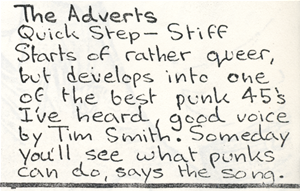 The Adverts
Quick Step - Stiff
Starts of rather queer,
but develops into one
of the best punk 45's
I've heard, good voice
by Tim Smith. Someday
you'll see what punks
can do, says the song.